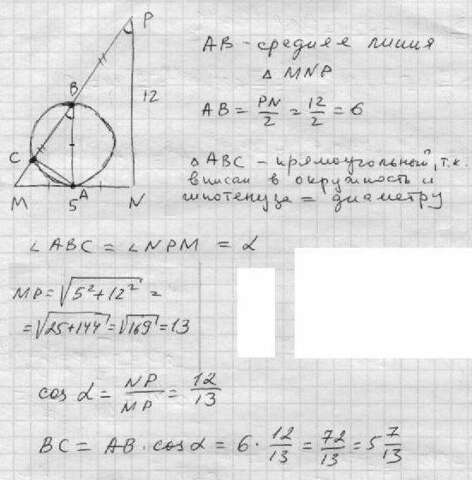 P
AB - средняя линия
△ MNP
B
12
AB = PN/2 = 12/2 = 6
C
△ABC - прямоугольный, т.к.
вписан в окружность и
гипотенуза = диаметру
M 5 A N
∠ABC = ∠NPM = α
MP = √(5² + 12²) =
= √(25+144) = √169 = 13
cos α = NP/MP = 12/13
BC = AB · cos α = 6 · 12/13 = 72/13 = 5 7/13